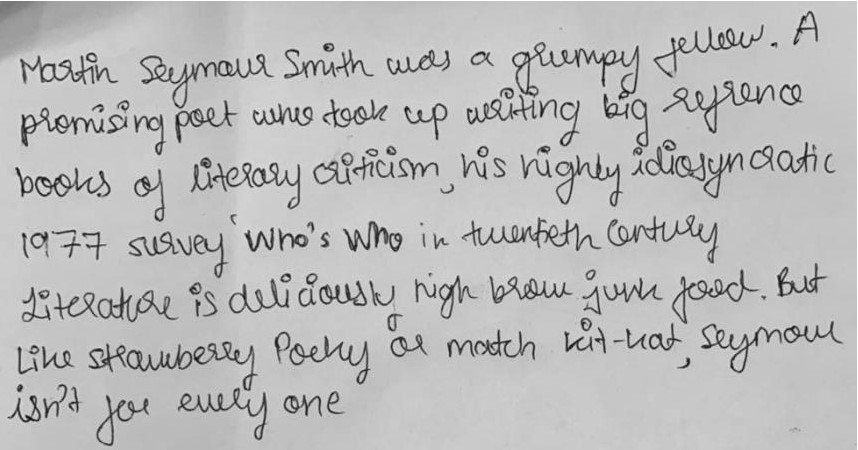 Martin Seymour Smith was a grumpy fellow. A
promising poet who took up writing big refrence
books of literary criticism, his highly idiosyncratic
1977 survey 'Who's Who in twentieth Century
Literature is deliciously high brow junk food. But
Like strawberry Pocky or match kit-kat, Seymour
isn't for every one